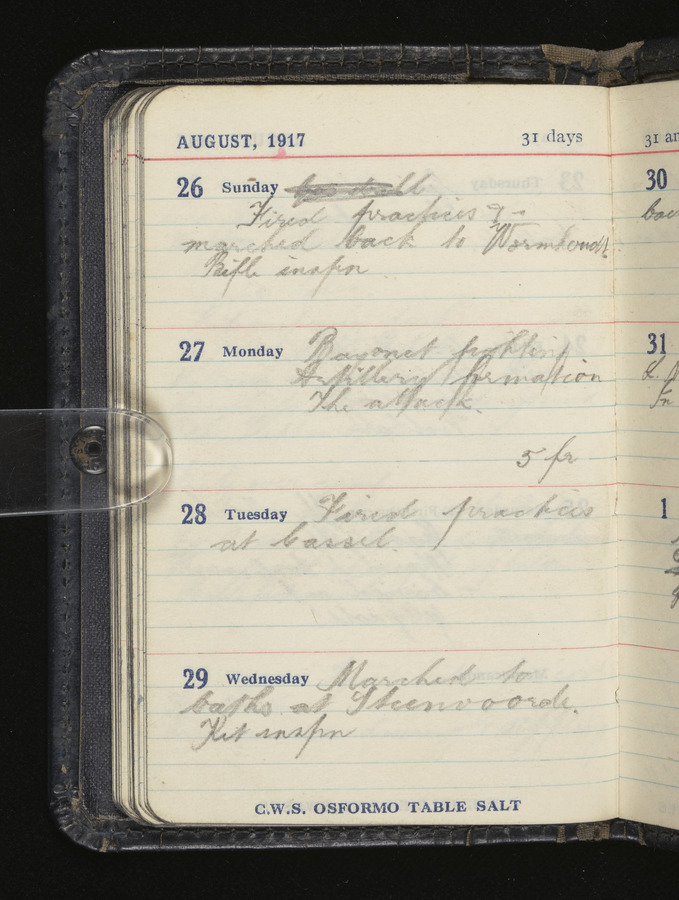 AUGUST, 1917 31 days
26 Sunday Gas drill
Fired practices & -
marched back to Wormhoudt
Rifle inspn
27 Monday Bayonet fighting
Artillery formation
The attack.
5 fr
28 Tuesday Fired practices
at Cassel.
29 Wednesday Marched to
baths at Steenvoorde.
Kit inspn
C.W.S. OSFORMO TABLE SALT
31 an
30
bac
31
1